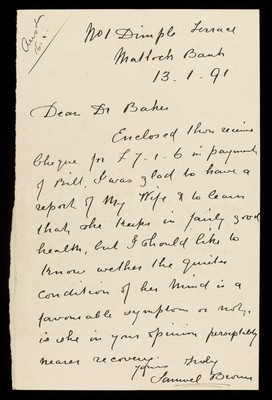 Ansd
16.1.
No 1 Dimple Terrace
Matlock Bank
13.1.91
Dear Dr Baker
Enclosed thou receive
Cheque for £7-1-6 in payment
of Bill, I was glad to have a
report of My Wife & to learn
that she keeps in fairly good
health, but I should like to
know wether the quiter
condition of her mind is a
favourable symptom or not,
is she in your opinion perceptibly
nearer recovery.
yours truly
Samuel Brown